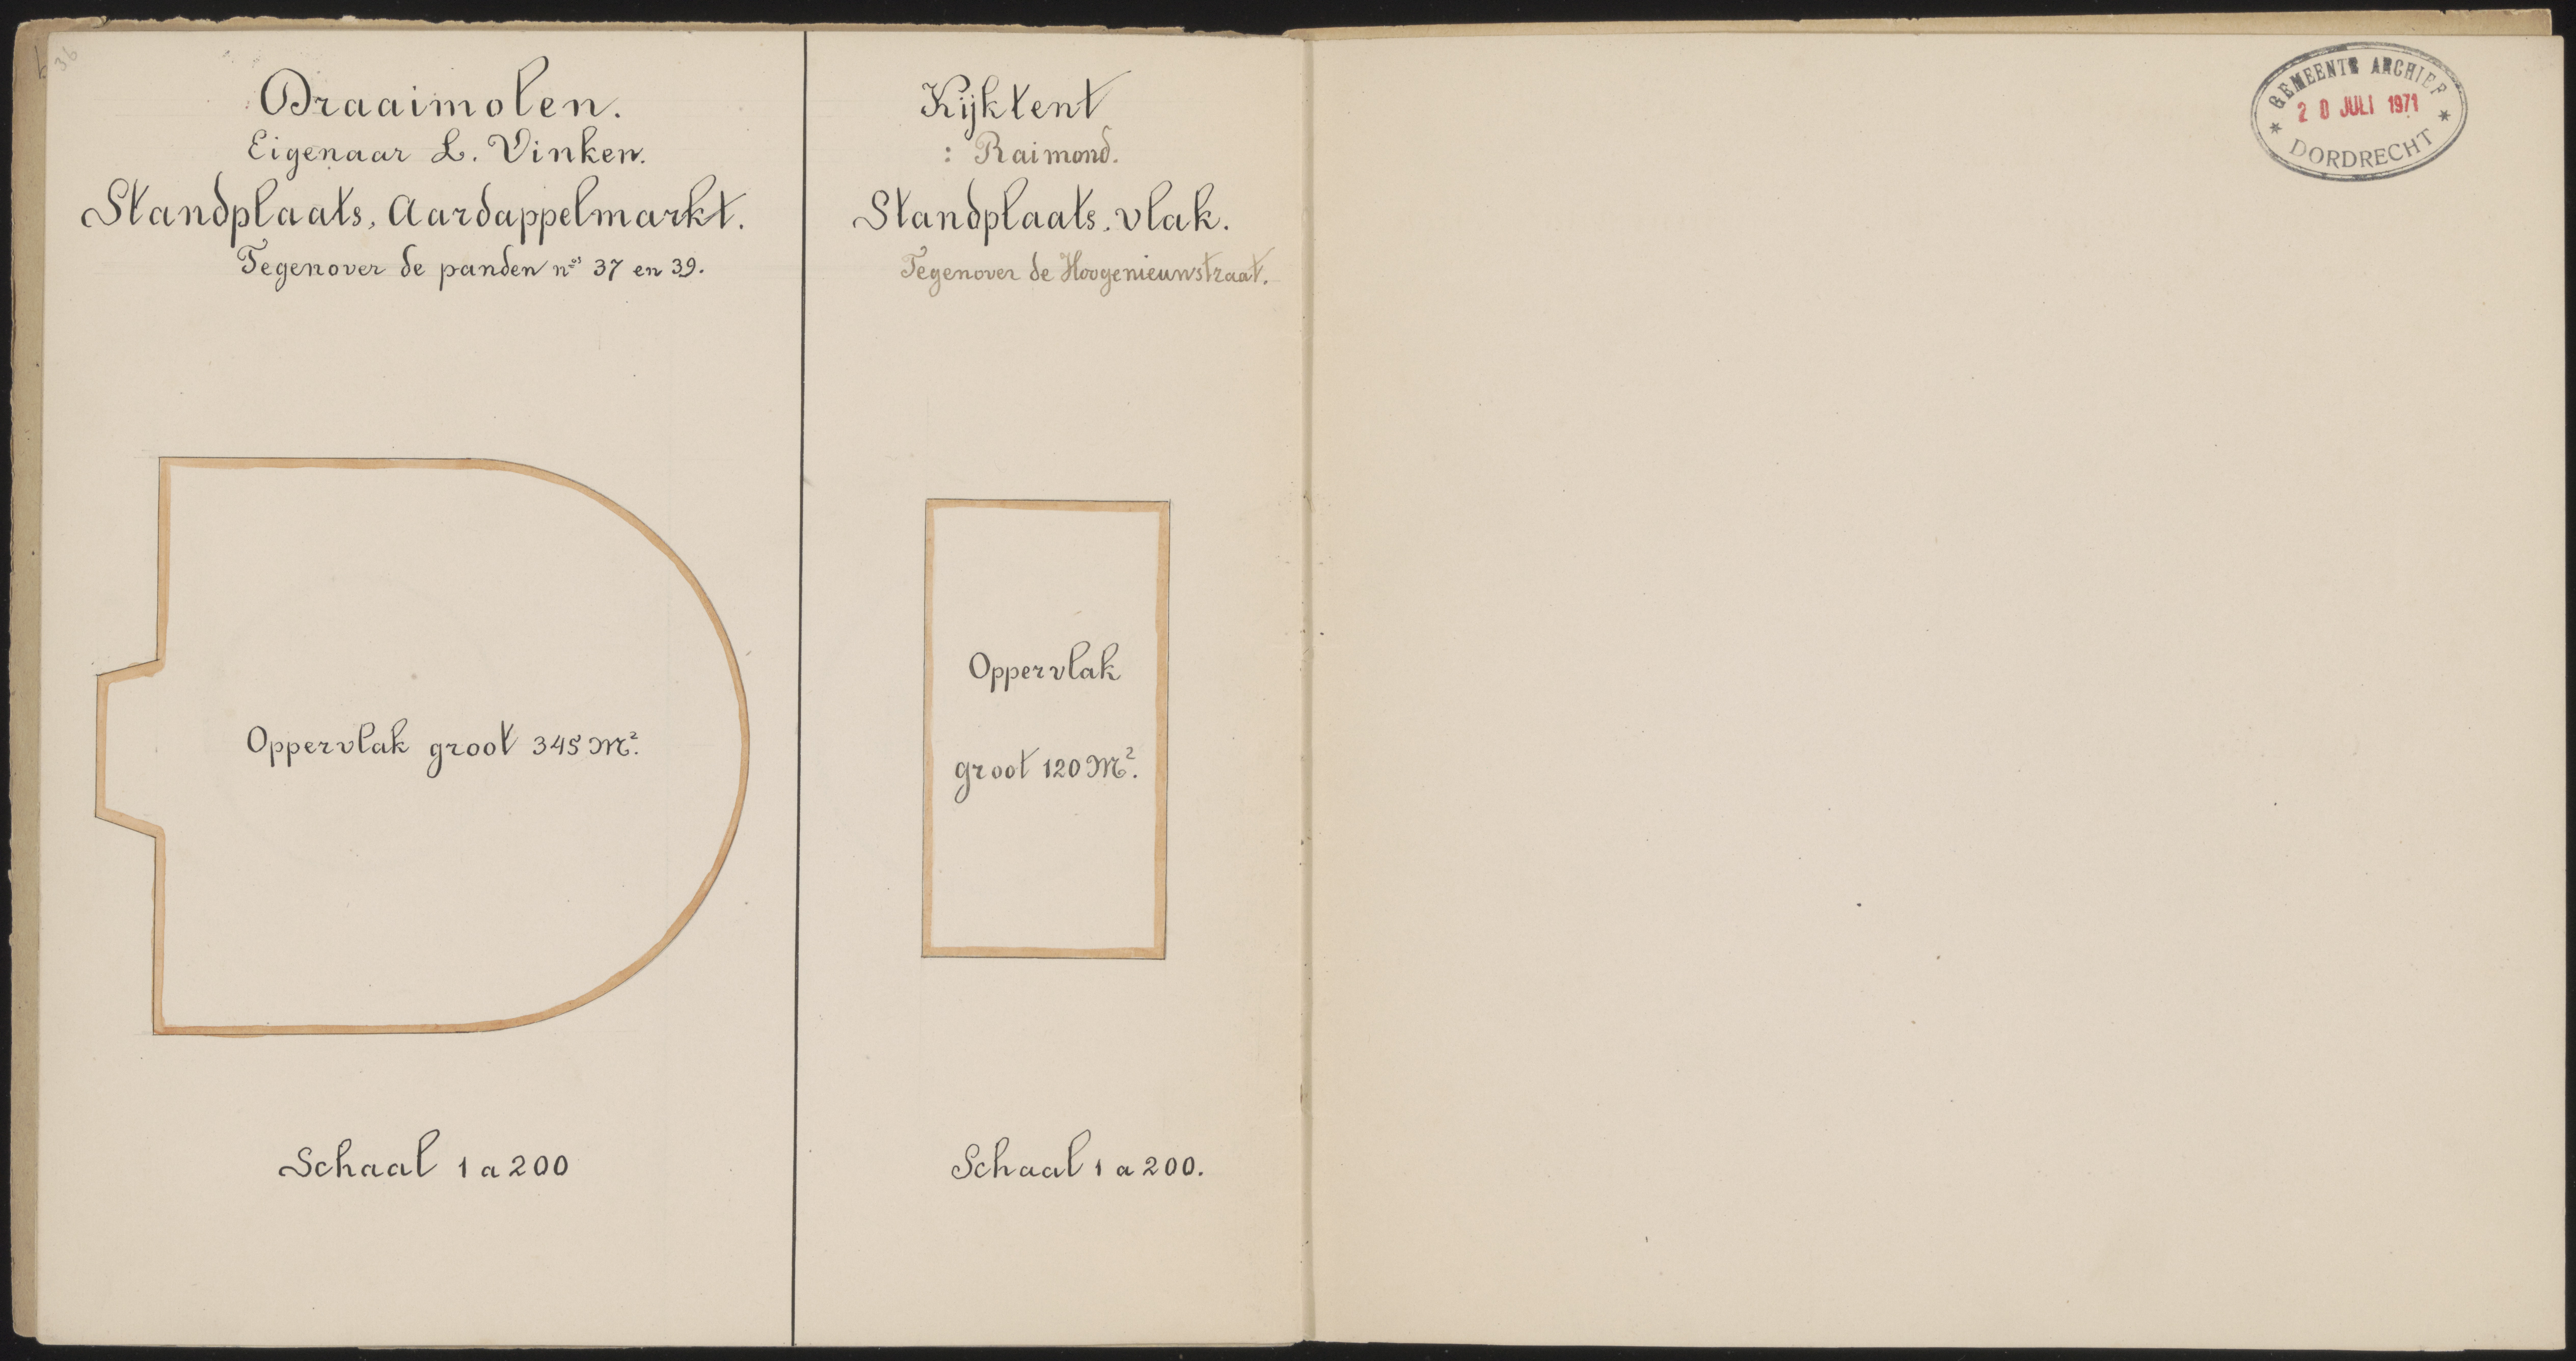 36
Draaimolen.
Eigenaar L. Vinken.
Standplaats, Aardappelmarkt.
Tegenover de panden nos 37 en 39.
Oppervlak groot 345 M².
Schaal 1 a 200
Kijktent
: Raimond.
Standplaats. vlak.
Tegenover de Hoogenieuwstraat.
Oppervlak
groot 120 M².
Schaal 1 a 200.
GEMEENTE ARCHIEF
20 JULI 1971
* DORDRECHT *